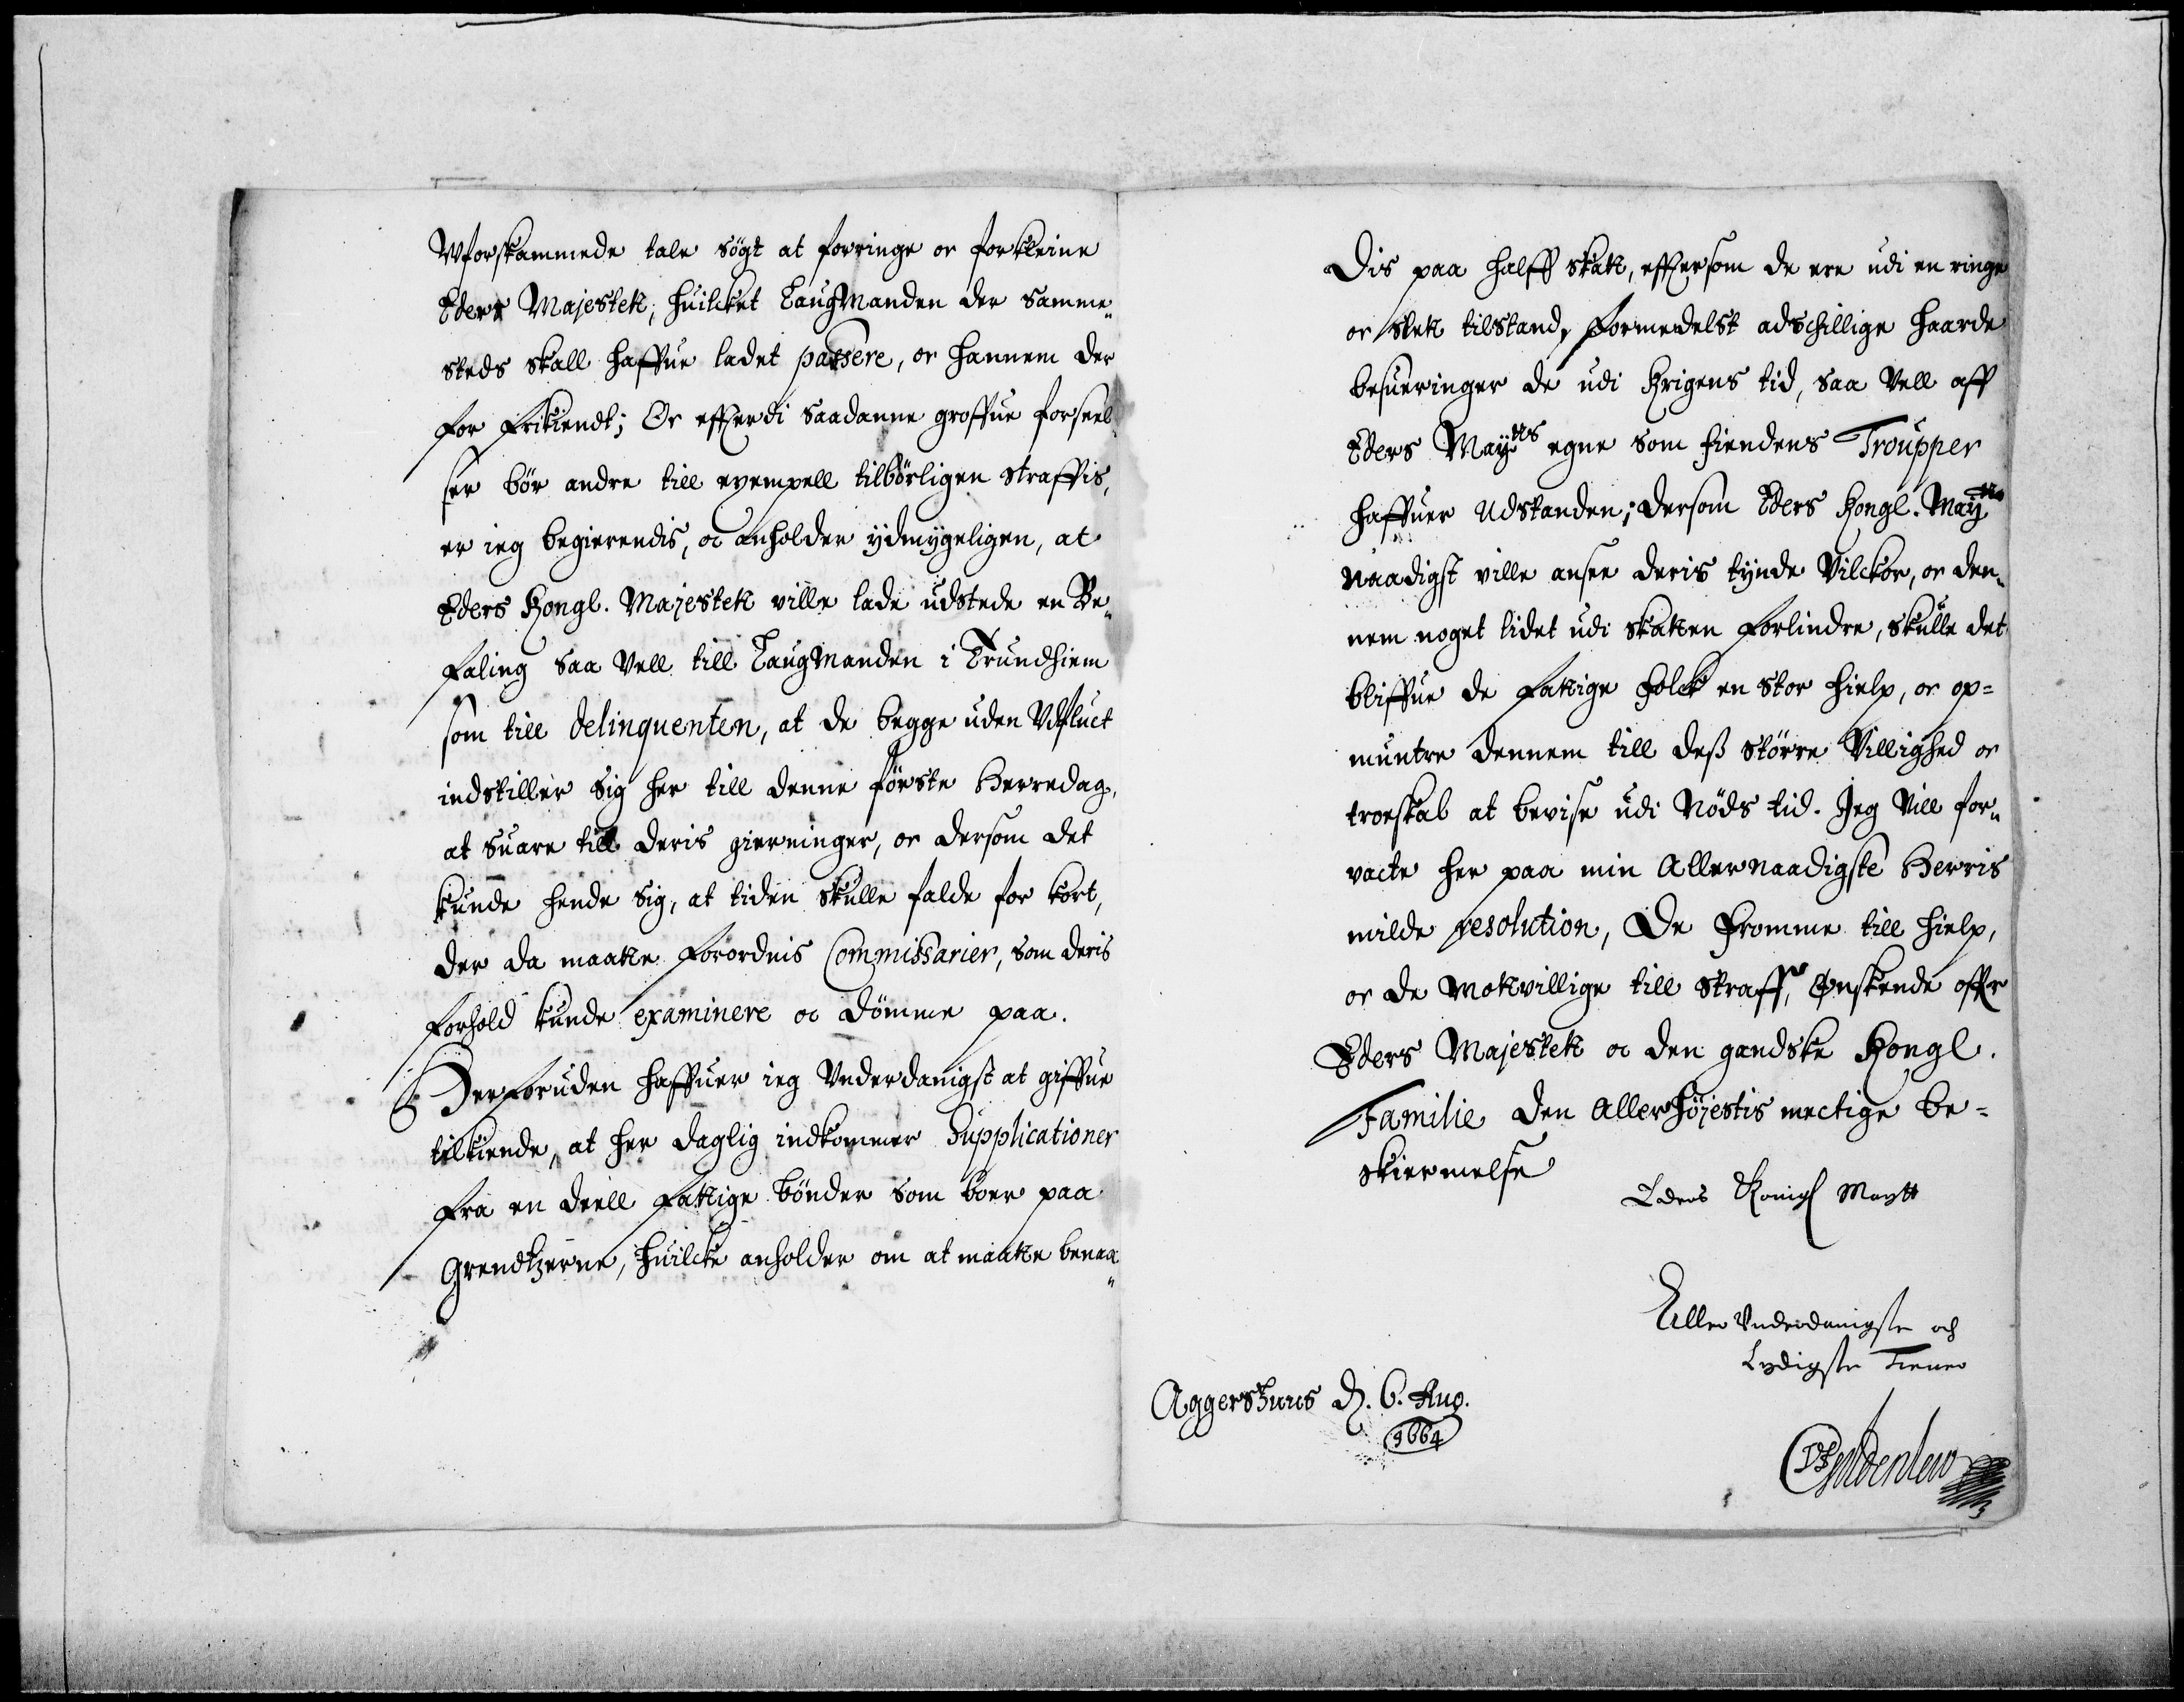 Wforskammede tale søgt at forringe oc forkleine
Eders Majestett, huilcket Laugmanden der samme„
steds skall haffue ladet passere, oc hannem der
for frikiendt; Oc effterdi saadanne groffue forseel„
ser bør andre till exempell tilbørligen straffis,
er ieg begierendis, oc anholder ydmygeligen, at
Eders Kongl. Majestett ville lade udstede en Be„
faling saa vell till Laugmanden i Trundhiem
som till delinquenten, at de begge uden Udfluct
indstiller sig her till denne første Herredag,
at suare till deris gierninger, oc dersom det
kunde hende sig, at tiden skulle falde for kort,
der da maatte forordnis Commissarier, som deris
forhold kunde examinere oc dømme paa.
Derforuden haffuer ieg Vnderdanigst at giffue
tilkiende, at her daglig indkommer Supplicationer
fra en deell fattige bønder som boer paa
Grendtzerne, huilcke anholder om at maatte benaa„
dis paa halff skatt, effersom de ere udi en ringe
oc slett tilstand, formedelst adschillige haarde
besueringer de udi Krigens tid, saa vell aff
Eders Maytts egne som fiendens Troupper
haffuer udstanden; dersom Eders Kongl. Maytt
naadigst ville ansee deris tynde Vilckor, oc den„
nem noget lidet udi skatten forlindre, skulle det
bliffue de fattige folck en stor hielp, oc op=
muntre dennem till deß større Villighed oc
troeskab at bevise udi Nøds tid. Jeg Vill for„
vacte her paa min Allernaadigste Herris
milde resolution, De fromme till hielp,
oc de motvillige till straff, Ønskende offr
Eders Majestett oc den gandske Kongl.
Familie den Allerhøjestis mectige be=
skiermelse
Eders Konigl Maytt
Aller Vnderdanigste och
Lydigste Tiener
Aggershuus d. 6. Aug.
1664
Gyldenlew